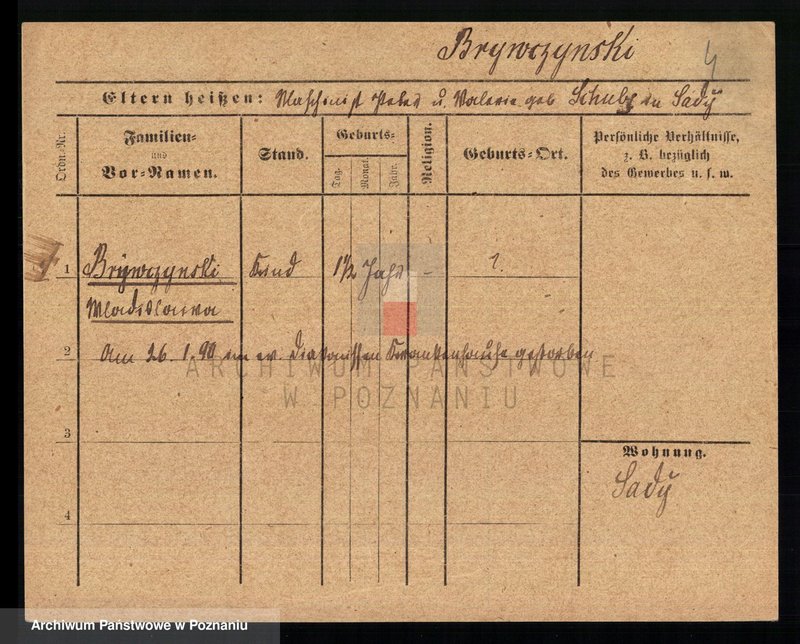 Brywczynski
4
Eltern heißen: Maschinist Peter u. Valerie geb Schulz in Sady
Ordn.-Nr.
Familien-
und
Vor-Namen.
Stand.
Geburts-
Tag.
Monat.
Jahr.
Religion.
Geburts-Ort.
Persönliche Verhältnisse,
z. B. bezüglich
des Gewerbes u. s. w.
1 Brywczynski Kind 1½ Jahr - ?
Wladislawa
2 Am 26.1.90 im ev. Diakonissen Krankenhause gestorben
ARCHIWUM PAŃSTWOWE
W POZNANIU
3
Wohnung.
Sady
4
Archiwum Państwowe w Poznaniu